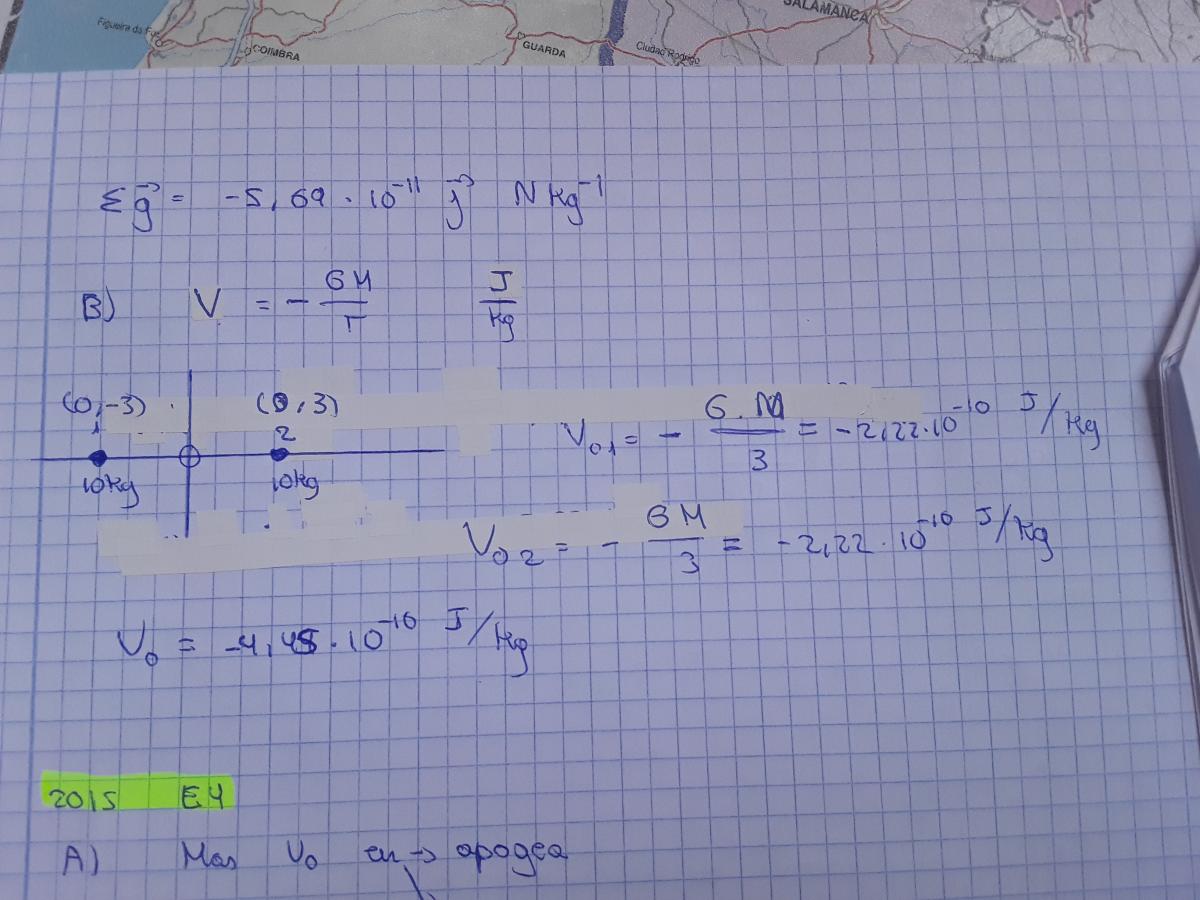 Figueira da Foz
COIMBRA
GUARDA
Ciudad Rodrigo
SALAMANCA
Σg⃗ = -5,69 · 10⁻¹¹ j⃗ N kg⁻¹
B) V = - GM/r J/kg
(0,-3) (0,3)
1 2
10kg 10kg
V₀₁ = - G.M/3 = -2,22·10⁻¹⁰ J/kg
V₀₂ = - GM/3 = -2,22·10⁻¹⁰ J/kg
V₀ = -4,45·10⁻¹⁰ J/kg
2015 E4
A) Mas V₀ en → apogea